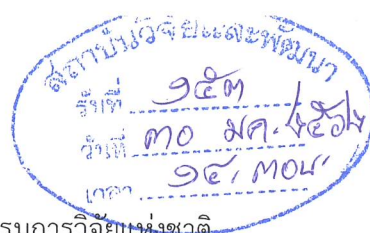 สถาบันวิจัยและพัฒนา
รับที่ ๑๕๓
วันที่ ๓๐ มค. ๒๕๖๒
เวลา ๑๔.๓๐น.
รมการวิจัยแห่งชาติ